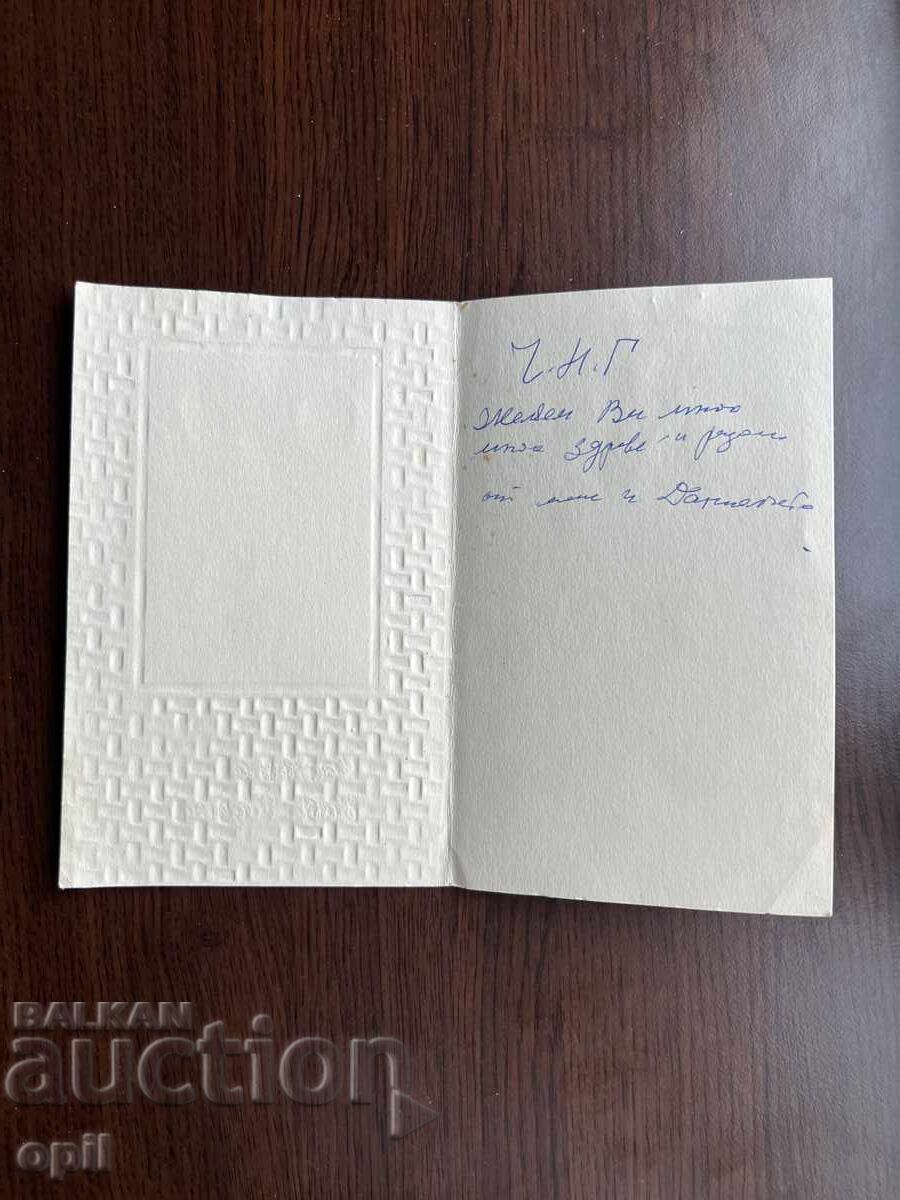 Ч.Н.Г
Желая Ви много
много здраве и радост
от мен и
BALKAN
auction
opil